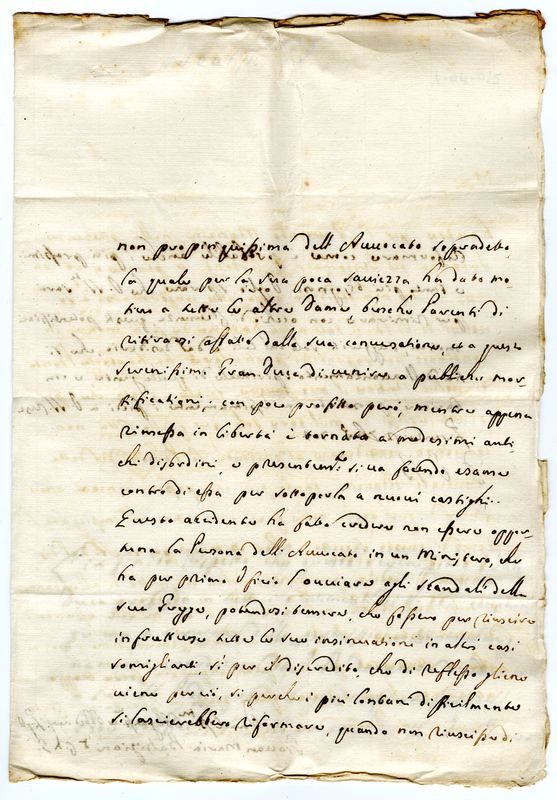 non propinquissima dell'Auuocato sopradetto
la quale per la sua poca sauiezza ha dato mo
tiuo a tutte le altre Dame benche Parenti di
ritirarsi affatto dalla sua conuersatione, et a questi
Serenissimi Gran Duca di uenire a publiche mor-
tificationi; con poco profitto però, mentre appena
rimessa in libertà è tornata a medesimi anti-
chi disordini, e presentem.te si ua facendo esame
contro di essa per sottoporla a nuoui castighi.
Questo accidente ha fatto credere non essere oppor-
tuna la Persona dell'Auuocato in un Ministero, che
ha per primo Officio l'ouuiare agli scandali della
sua Gregge, potendosi temere, che fossero per riuscire
infruttuose tutte le sue insinuationi in altri casi
somiglianti, si per il discredito, che di riflesso gliene
uiene per ciò, si perche i più lontani difficilmente
si lascierebbero riformare, quando non riuscisse di